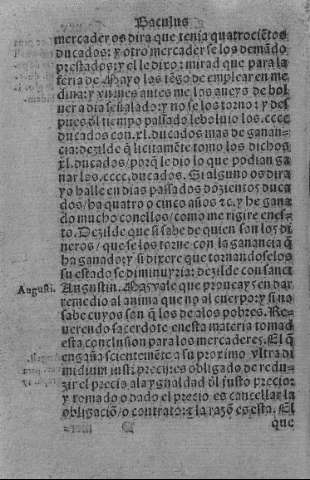 Baculus
mercader os dira que tenia quatrociẽtos
ducados: y otro mercader se los demãdo
prestados: y el le dixo: mirad que para la
feria de Mayo los tẽgo de emplear en me
dina: y xv. mes antes me los aueys de bol
uer a dia señalado: y no se los torno: y des
pues ðl tiempo passado le boluio los .cccc.
ducados con .xl. ducados mas de ganan-
cia: dezilde q̃ licitamẽte tomo los dichos
xl. ducados / porq̃ le dio lo que podian ga
nar los .cccc. ducados. Si alguno os dira
yo halle en dias passados dozientos duca
dos / ha quatro o cinco años ⁊c. y he gana
do mucho conellos / como me rigire enes-
to. Dezilde que si sabe de quien son los di
neros / que se los torne con la ganancia q̃
ha ganado: y si dixere que tornandoselos
su estado se diminuyria: dezilde con sanct
Augusti. Augustin. Mas vale que proueays en dar
remedio al anima que no al cuerpo: y si no
sabe cuyos son q̃ los de a los pobres. Re-
uerendo sacerdote enesta materia tomad
esta conclusion para los mercaderes. El q̃
engaña scientemẽte a su proximo vltra di
midium iusti precij: es obligado de redu-
zir el precio a la ygualdad ðl justo precio:
y tomado o dado el precio es cancellar la
obligaciõ / o contrato: ⁊ la razõ es esta. El
que